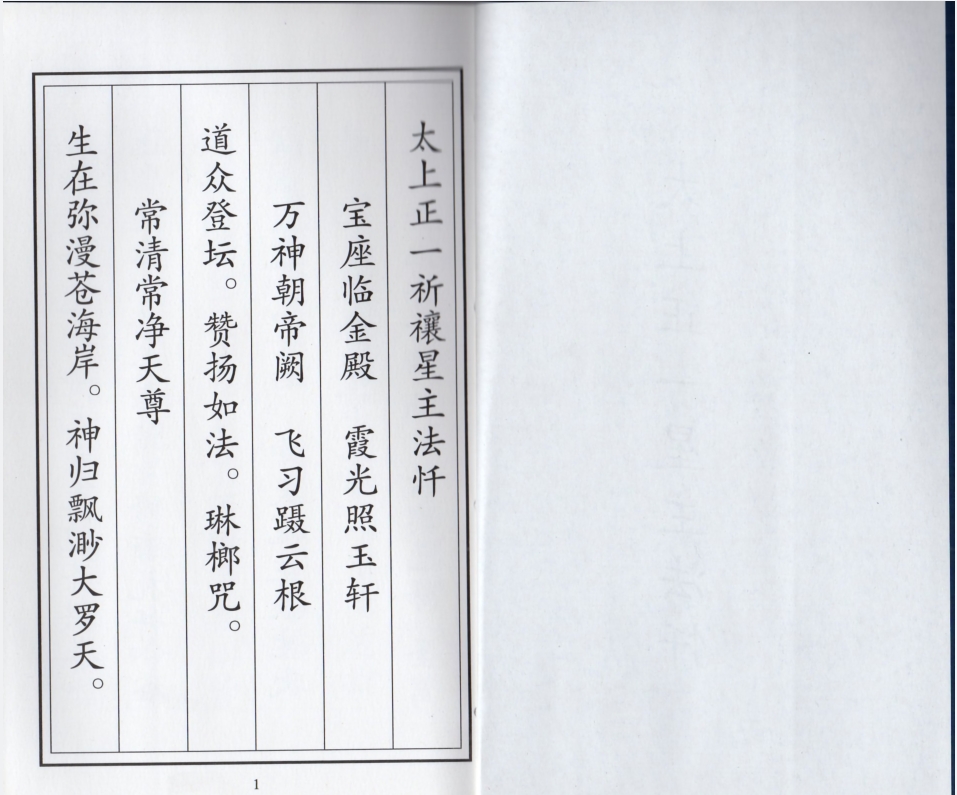 太上正一祈禳星主法忏
宝座临金殿　霞光照玉轩
万神朝帝阙　飞习蹑云根
道众登坛。赞扬如法。琳榔咒。
常清常净天尊
生在弥漫苍海岸。神归飘渺大罗天。
1